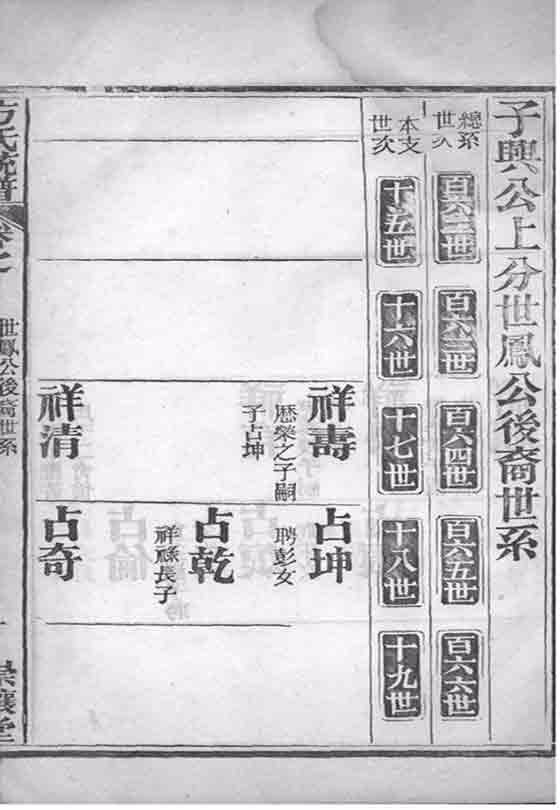 子興公上分世鳳公後裔世系
總系
世次
百六二世
百六三世
百六四世
百六五世
百六六世
本支
世次
十五世
十六世
十七世
十八世
十九世
祥壽
歷榮之子嗣
子占坤
祥清
占坤
聘彭女
占乾
祥祿長子
占奇
方氏統譜
世鳳公後裔世系